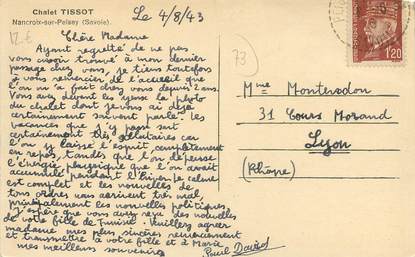 Chalet TISSOT
Nancroix-sur-Peisey (Savoie).
Le 4/8/43
12€
73
Chère Madame
Ayant regretté de ne pas
vous avoir trouvé à mon dernier
passage chez vous, je tiens toutefois
à vous remercier de l'accueil que
l'on m'a fait chez vous depuis 2 ans.
Vous avez devant les yeux la photo
du chalet dont je vous ai déjà
certainement souvent parlé. Les
vacances que j'y passe sont
certainement très salutaires car
l'on y laisse l'esprit complètement
en repos, tandis que l'on dépense
l'énergie physique que l'on avait
accumulé pendant l'hiver. Le calme
est complet et les nouvelles de
tous ordres vous arrivent très mal,
principalement les nouvelles politiques
J'espère que vous avez reçu des nouvelles
de votre fille de Tunisie. Veuillez agréer
madame mes plus sincères remerciements
et transmettre à votre fille et à Marie
mes meilleurs souvenirs
Paul David
Mme Monteredon
31 Cours Morand
Lyon
(Rhône)
1F20